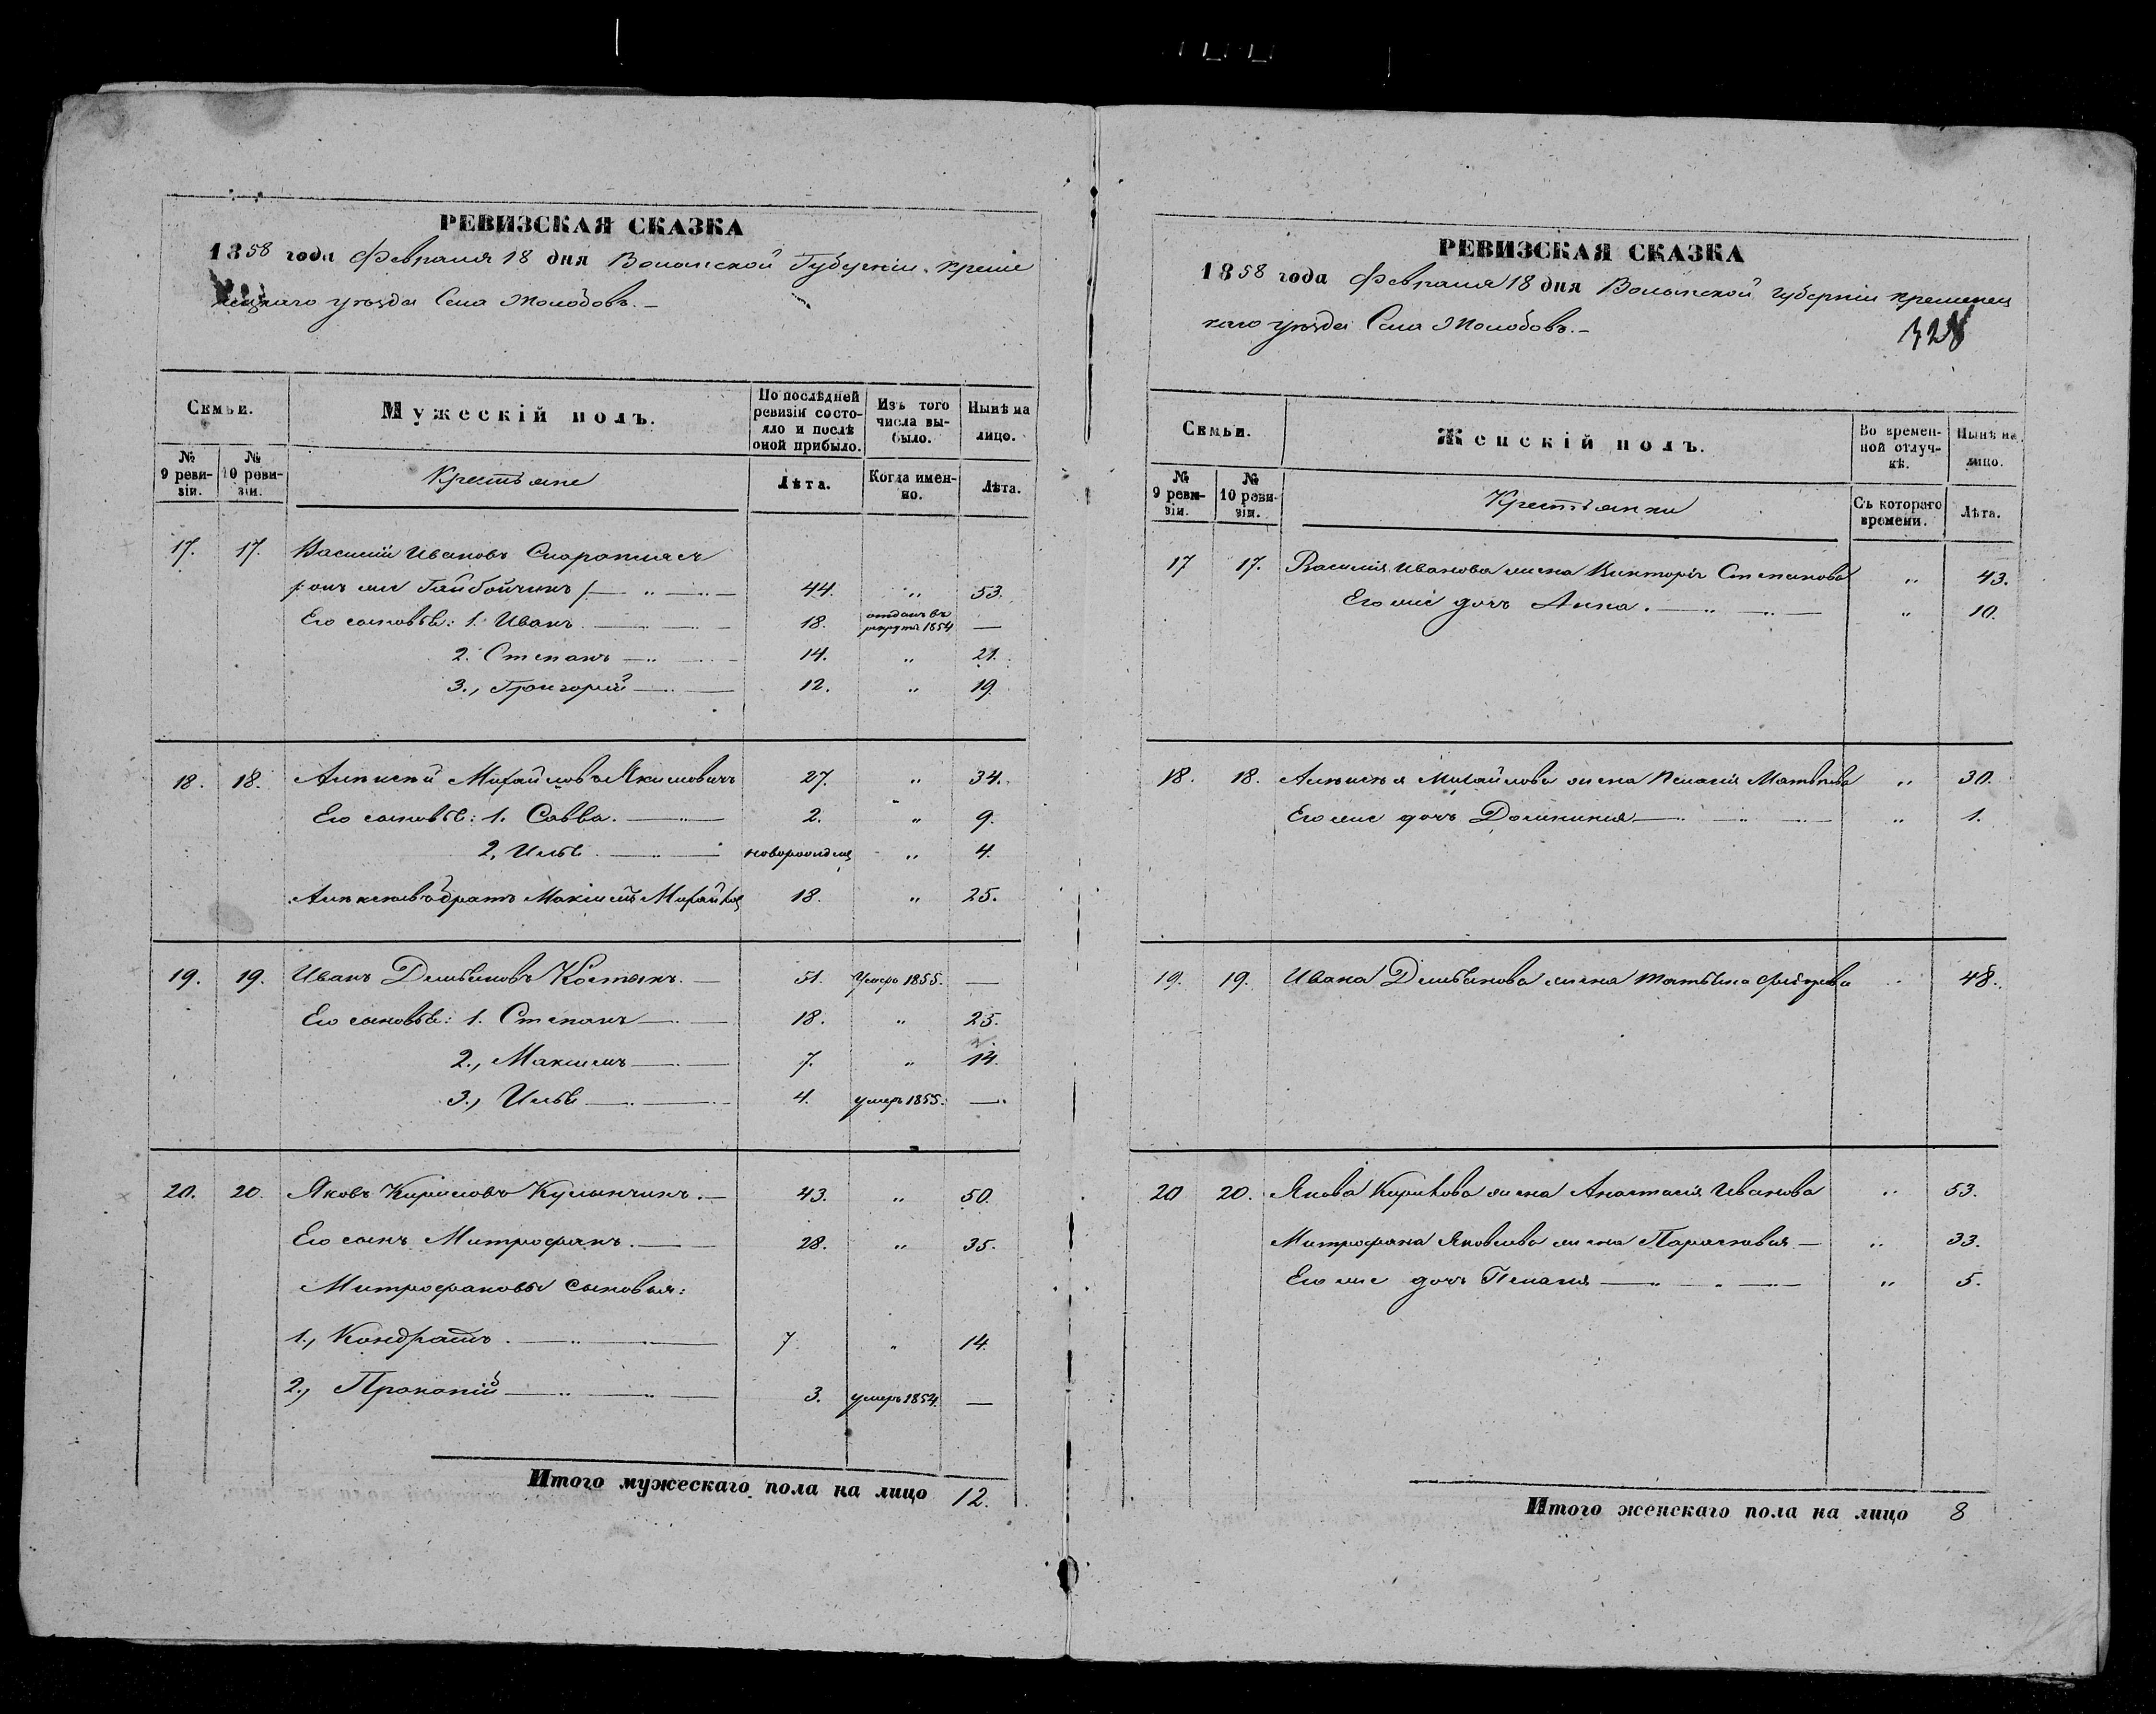 РЕВИЗСКАЯ СКАЗКА
1858 года Февраля 18 дня Волынской Губерніи Креме
нецкаго уѣзда Села Жолобовъ.—
Семьи.
Мужескій полъ.
По послѣдней ревизіи состояло и послѣ оной прибыло.
Изъ того числа выбыло.
Нынѣ на лицо.
№ 9 ревизіи.
№ 10 ревизіи.
Крестьяне
Лѣта.
Когда именно.
Лѣта.
17. 17. Василій Ивановъ
онъ же 44. „ 53.
Его сыновья: 1. Иванъ 18. отданъ въ рекруты 1854 —
2. Степанъ 14. „ 21.
3., Григорій 12. „ 19.
18. 18. Алексѣй Михайловъ Якимовичъ 27. „ 34.
Его сыновья: 1. Савва. 2. „ 9.
2. Илья новорожден „ 4.
Алексѣевъ братъ Максимъ 18. „ 25.
19. 19. Иванъ Демьяновъ Костюкъ. 51. Умеръ 1855. —
Его сыновья: 1. Степанъ 18. „ 25.
2., Максимъ 7. „ 14.
3., Илья 4. умеръ 1855. —
20. 20. Яковъ Кириловъ 43. „ 50.
Его сынъ Митрофанъ. 28. „ 35.
Митрофановы сыновья:
1., Кондратъ 7 „ 14.
2., Прокопій 3. умеръ 1854. —
Итого мужескаго пола на лицо 12.
РЕВИЗСКАЯ СКАЗКА
1858 года Февраля 18 дня Волынской Губерніи Кременец
каго уѣзда Села Жолобовъ.—
Семьи.
Женскій полъ.
Во временной отлучкѣ.
Нынѣ на лицо.
№ 9 ревизіи.
№ 10 ревизіи.
Крестьянки
Съ котораго времени.
Лѣта.
17 17. Василія Иванова жена Викторія Степанова „ 43.
Его же дочь Анна. „ 10.
18. 18. Алексѣя Михайлова жена Пелагія „ 30.
Его же дочь Доминикія „ 1.
19. 19. Ивана Демьянова жена Татьяна 48.
20 20. Якова Кирилова жена Анастасія Иванова „ 53.
Митрофана Яковлева жена Парасковія „ 33.
Его же дочь Пелагія „ 5.
Итого женскаго пола на лицо 8